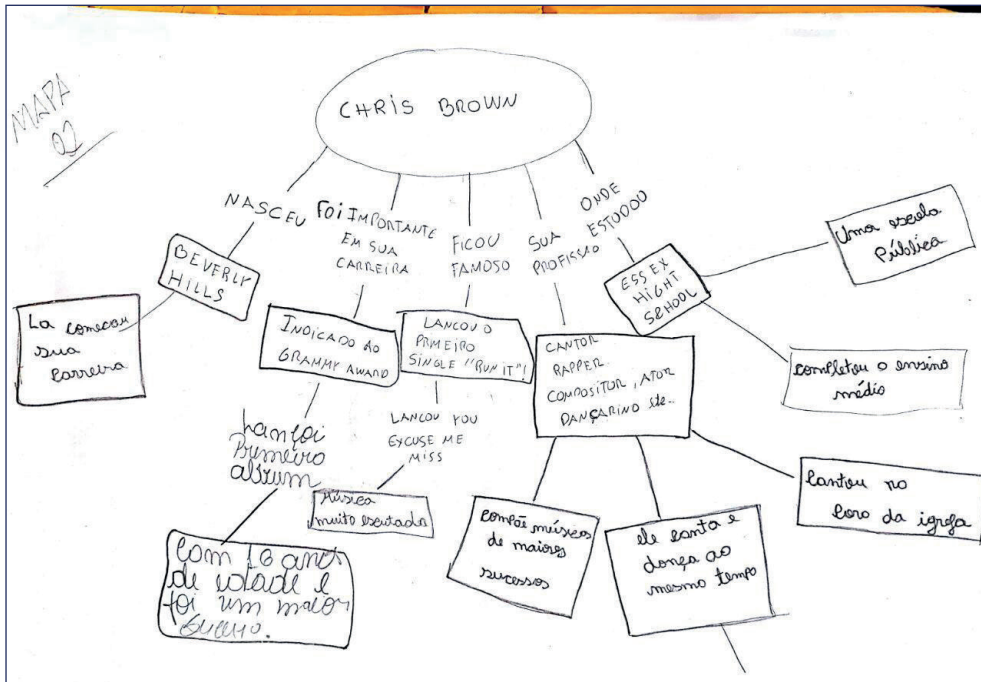 MAPA
02
CHRIS BROWN
NASCEU
BEVERLY
HILLS
La começou
sua
Carreira
FOI IMPORTANTE
EM SUA
CARREIRA
INDICADO AO
GRAMMY AWARD
Lançoi
Primeiro
albrum
Com 16 anos
de idade e
foi um maior
FICOU
FAMOSO
LANCOU O
PRIMEIRO
SINGLE "RUN IT"!
LANCOU YOU
EXCUSE ME
MISS
Música
muito escutada
SUA
PROFISSÃO
CANTOR
RAPPER
COMPOSITUR, ATOR
DANÇARINO
compõe músicas
de maiores
sucessos
ele canta e
dança ao
mesmo tempo
Cantou no
Coro da igreja
ONDE
ESTUDOU
ESSEX
HIGHT
SCHOOL
Uma escola
Pública
completou o ensino
médio